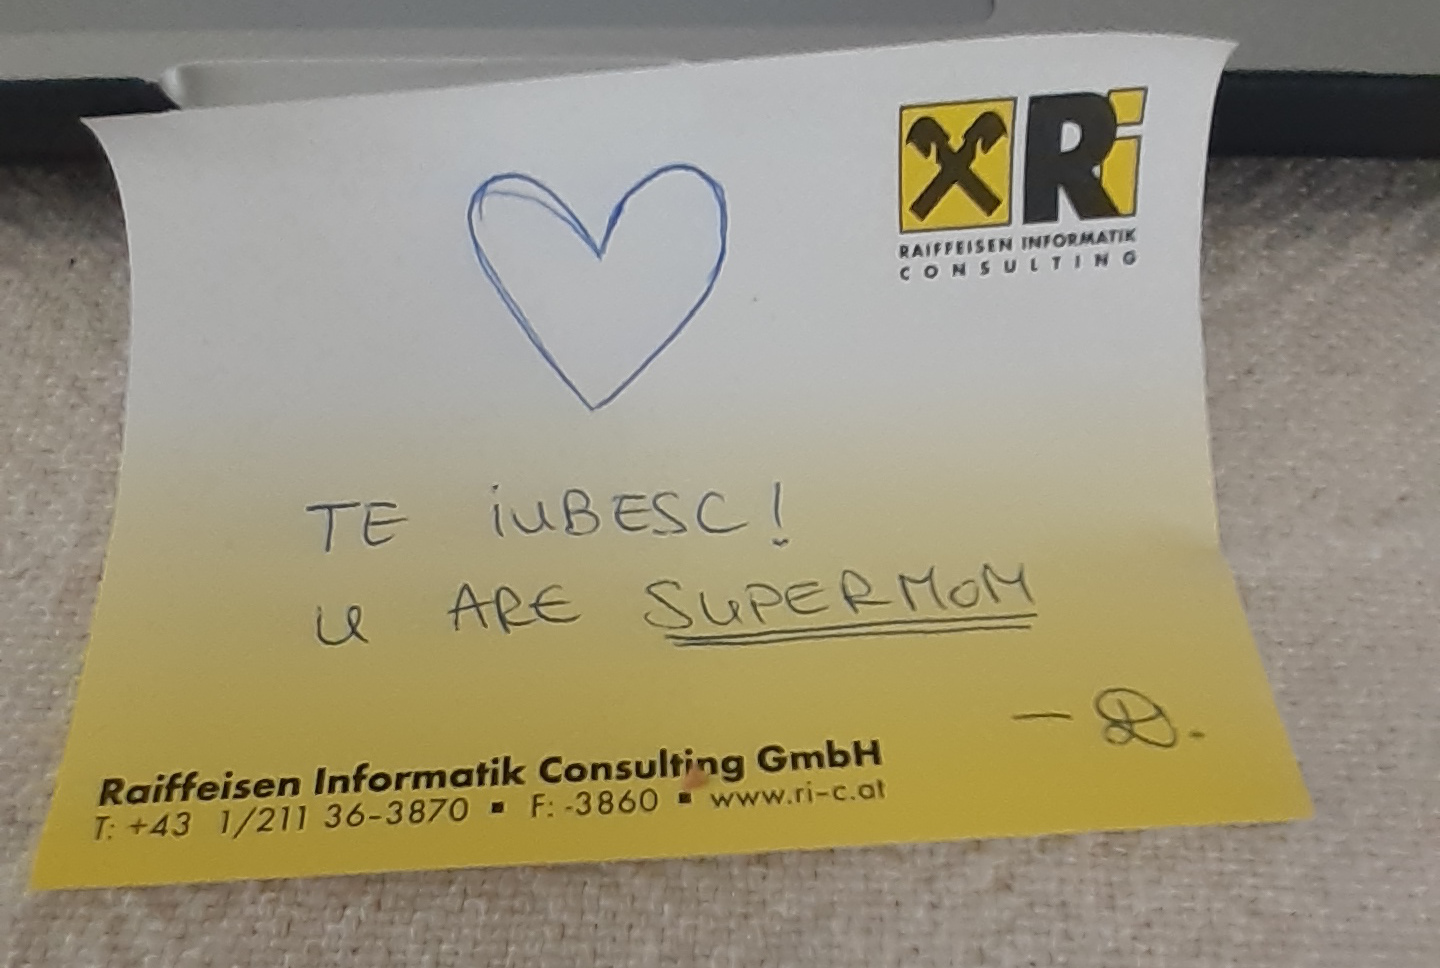 Ri
RAIFFEISEN INFORMATIK
CONSULTING
TE iuBESC!
u ARE SuPERMOM
— D.
Raiffeisen Informatik Consulting GmbH
T: +43 1/211 36-3870 ▪ F: -3860 ▪ www.ri-c.at